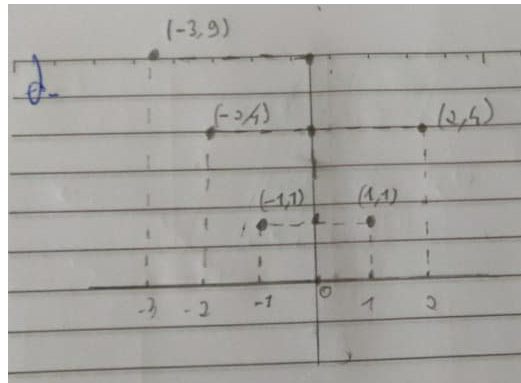 (-3,9)
d-
(-2,4) (2,4)
(-1,1) (1,1)
-3 -2 -1 0 1 2